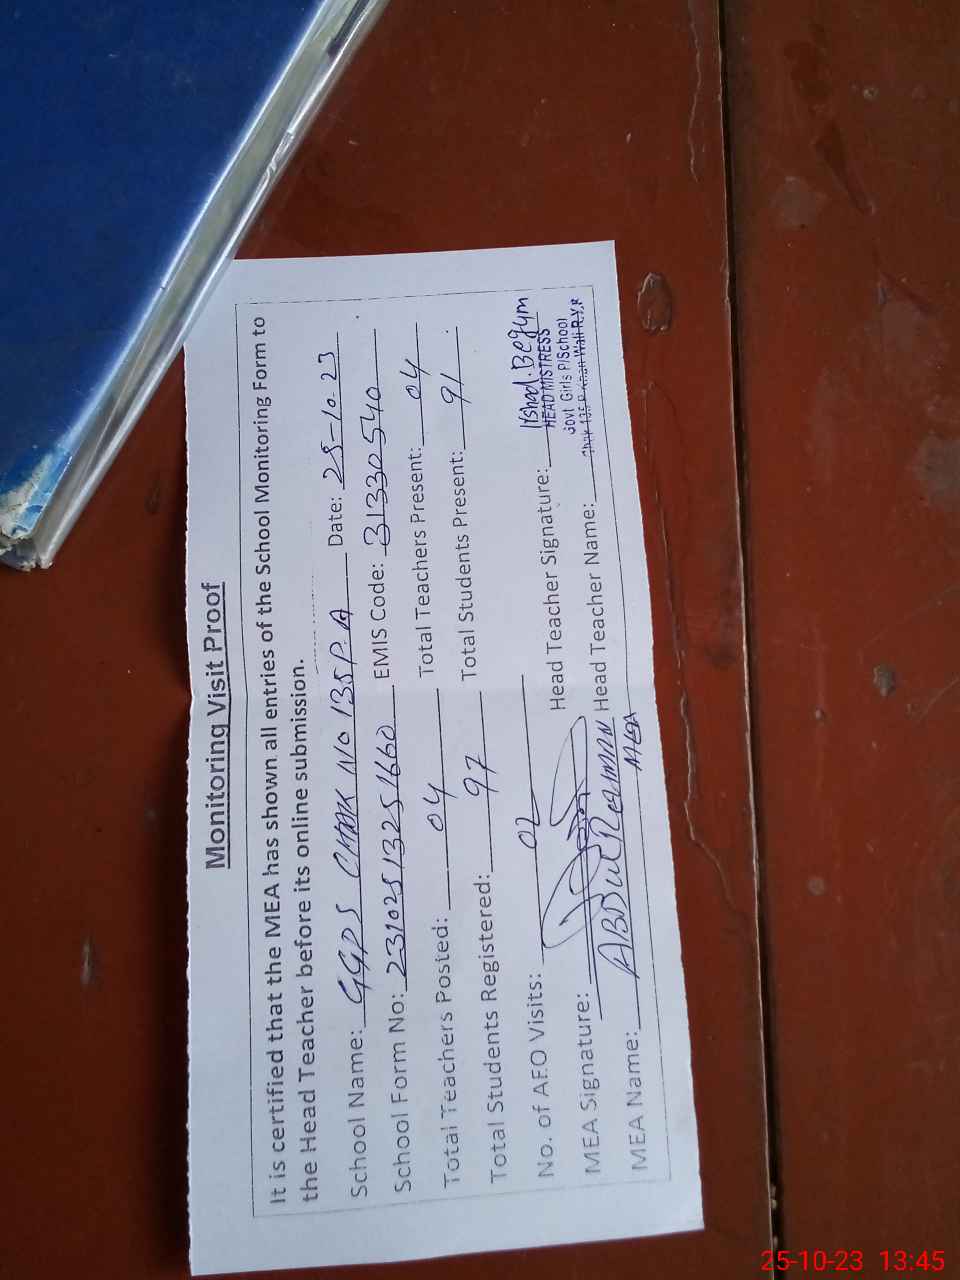 Monitoring Visit Proof
It is certified that the MEA has shown all entries of the School Monitoring Form to
the Head Teacher before its online submission.
School Name: GGPS CHAK No 135P.A Date: 25-10-23
School Form No: 23102513251660 EMIS Code: 31330540
Total Teachers Posted: 04 Total Teachers Present: 04
Total Students Registered: 97 Total Students Present: 91
No. of AEO Visits: 02
MEA Signature: Head Teacher Signature: Irshad.Begum
HEAD MISTRESS
Govt Girls P/School
MEA Name: ABDUL REHMAN Head Teacher Name:
MEA
25-10-23 13:45